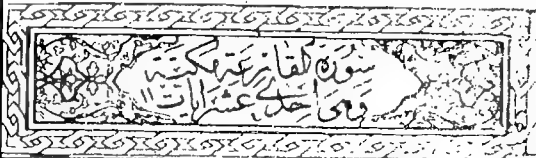 سورة القارعة مكية
وهي احدى عشر ايات ١١